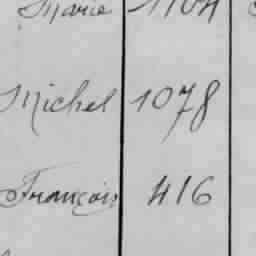 Marie 1104
Michel 1078
François 416